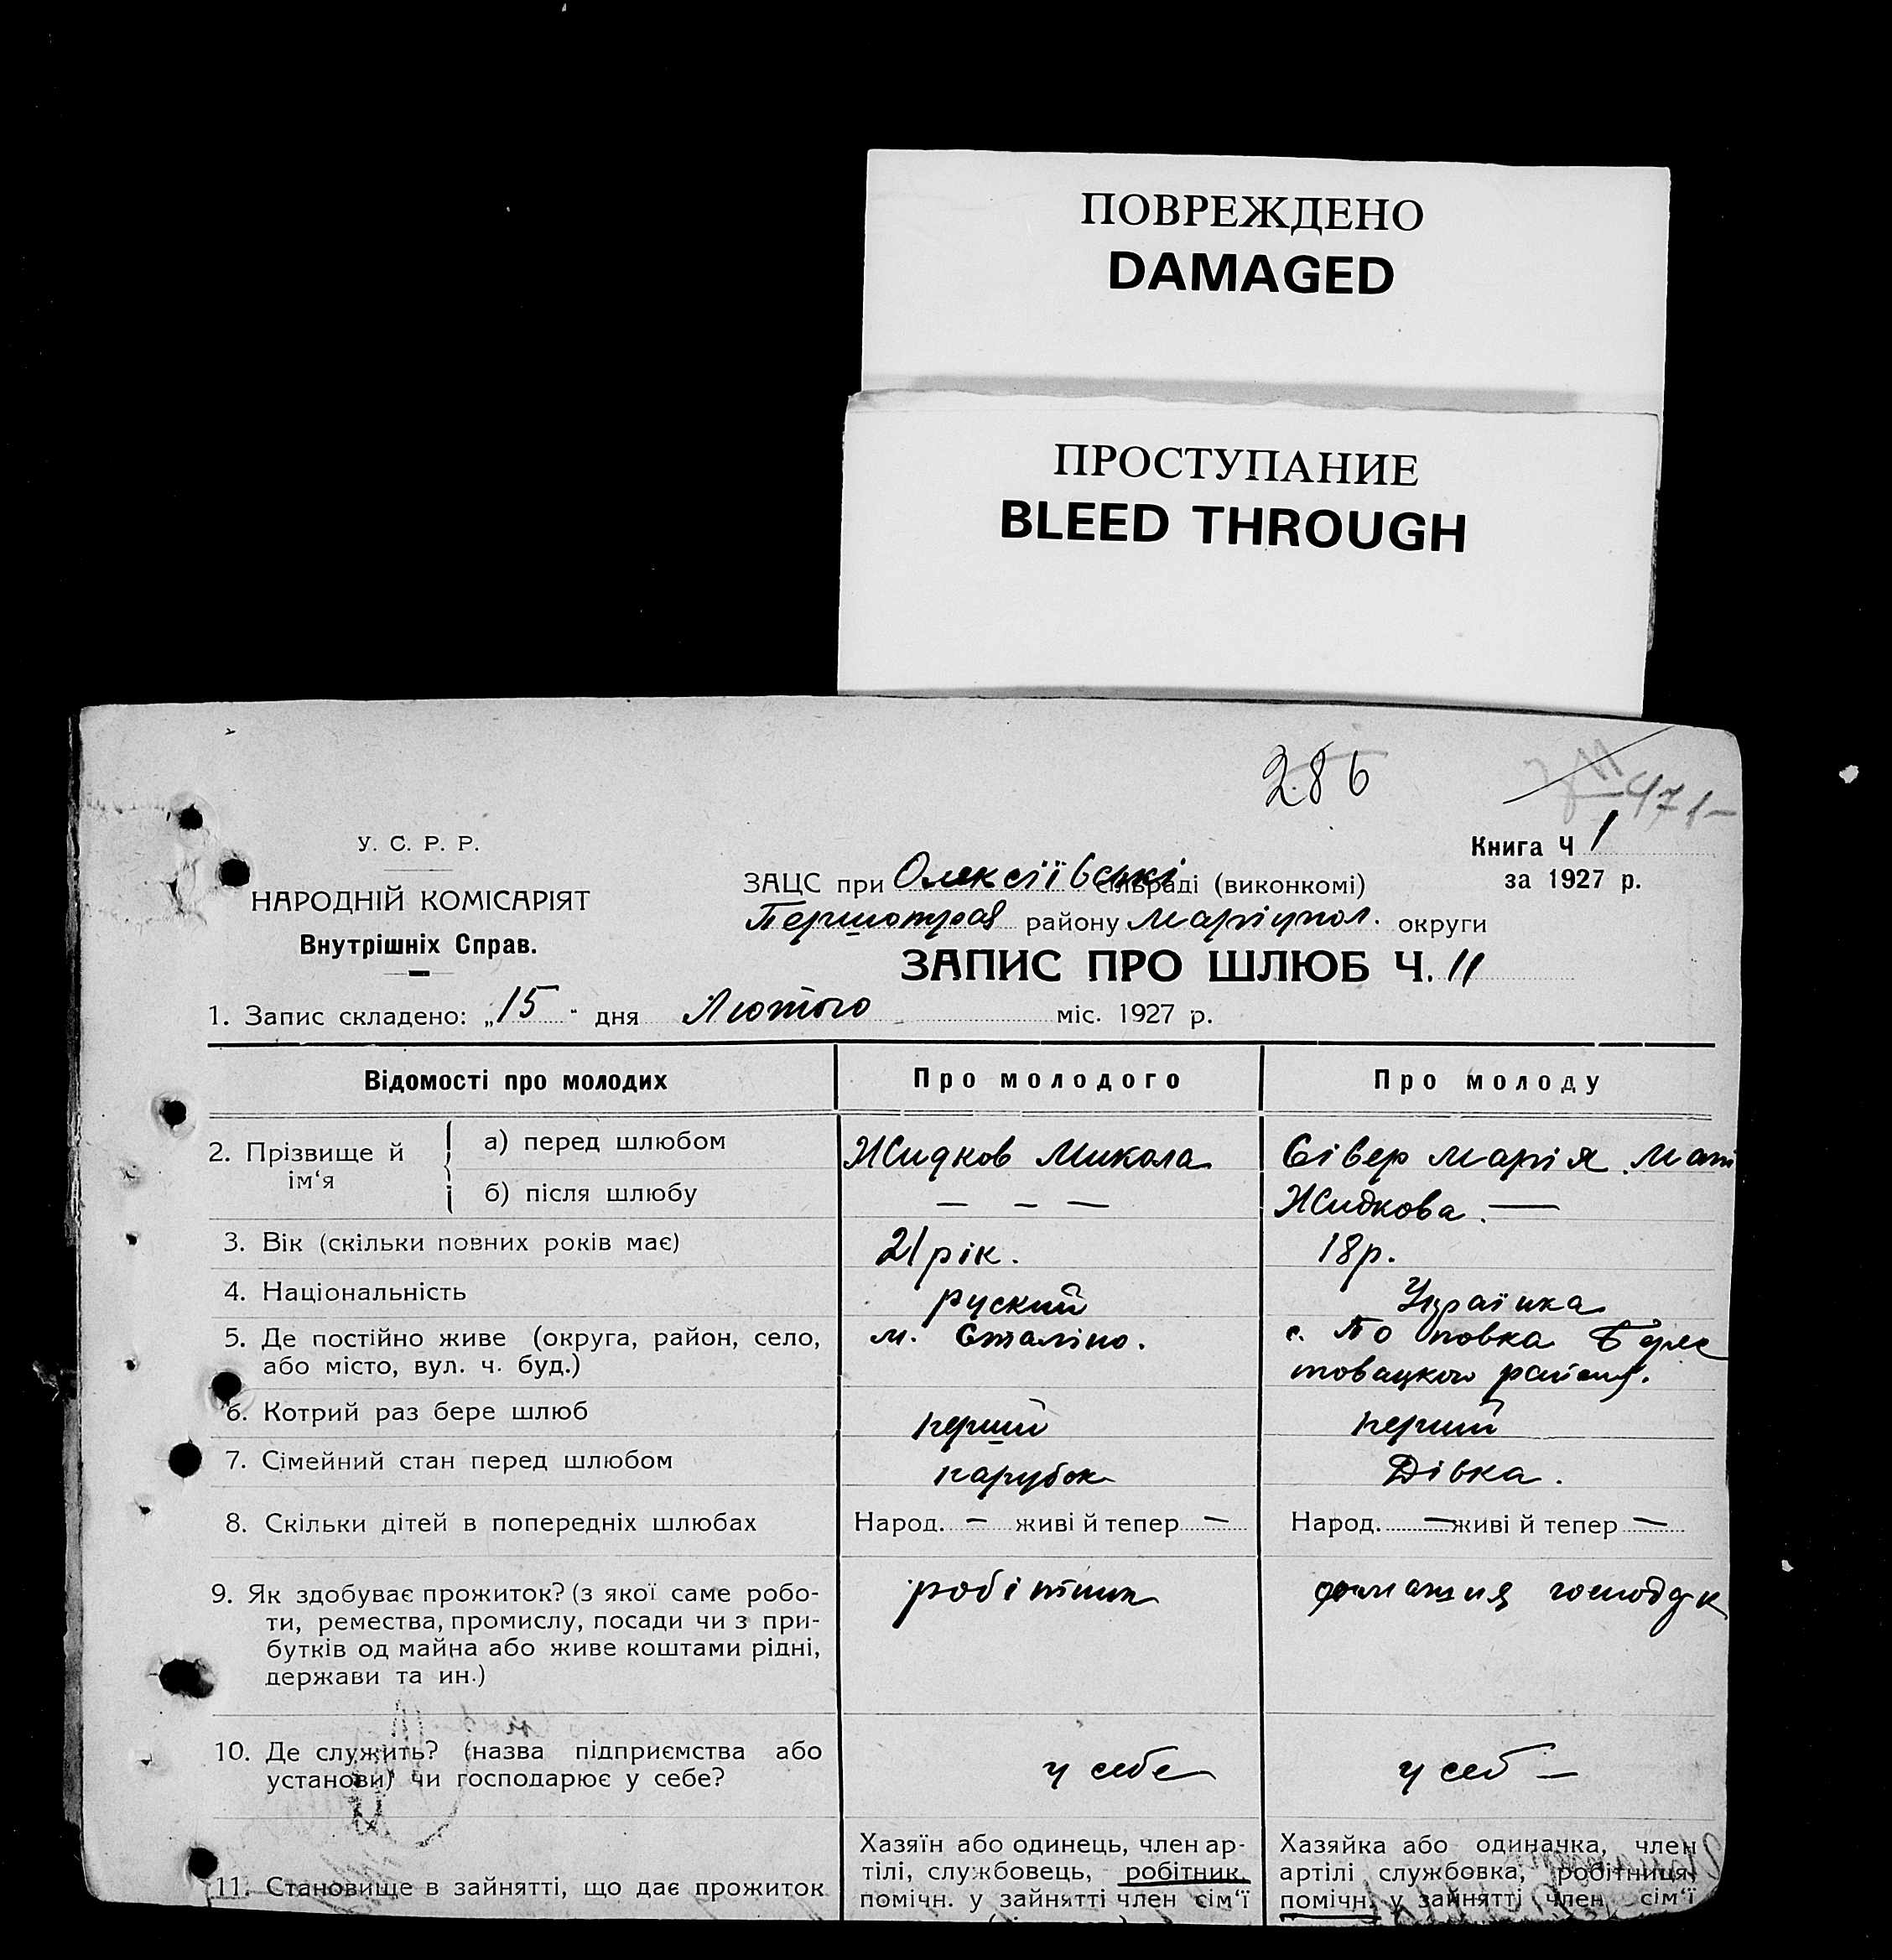 ПОВРЕЖДЕНО
DAMAGED
ПРОСТУПАНИЕ
BLEED THROUGH
286
471-
У. С. Р. Р.
НАРОДНІЙ КОМІСАРІЯТ
Внутрішніх Справ.
Книга Ч 1
за 1927 р.
ЗАЦС при Олексіївські сільраді (виконкомі)
Першотрав району Маріупол. округи
ЗАПИС ПРО ШЛЮБ Ч. 11
1. Запис складено: „15" дня Лютого міс. 1927 р.
Відомості про молодих Про молодого Про молоду
2. Прізвище й ім‘я
а) перед шлюбом Жидков Микола Сівер Марія Мат
б) після шлюбу — — — Жидкова. —
3. Вік (скільки повних років має) 21 рік. 18 р.
4. Національність руский Українка
5. Де постійно живе (округа, район, село, м. Сталіно. с. Поповка
або місто, вул. ч. буд.) района.
6. Котрий раз бере шлюб перший перший
7. Сімейний стан перед шлюбом парубок Дівка.
8. Скільки дітей в попередніх шлюбах Народ. — живі й тепер — Народ. — живі й тепер —
9. Як здобуває прожиток? (з якої саме робо- робітник домашня господ
ти, ремества, промислу, посади чи з при-
бутків од майна або живе коштами рідні,
держави та ин.)
10. Де служить? (назва підприємства або у себе у себ —
установи) чи господарює у себе?
11. Становище в зайнятті, що дає прожиток
Хазяїн або одинець, член ар-
тілі, службовець, робітник,
помічн. у зайнятті член сім‘ї
Хазяйка або одиначка, член
артілі службовка, робітниця,
помічн. у зайнятті член сім‘ї